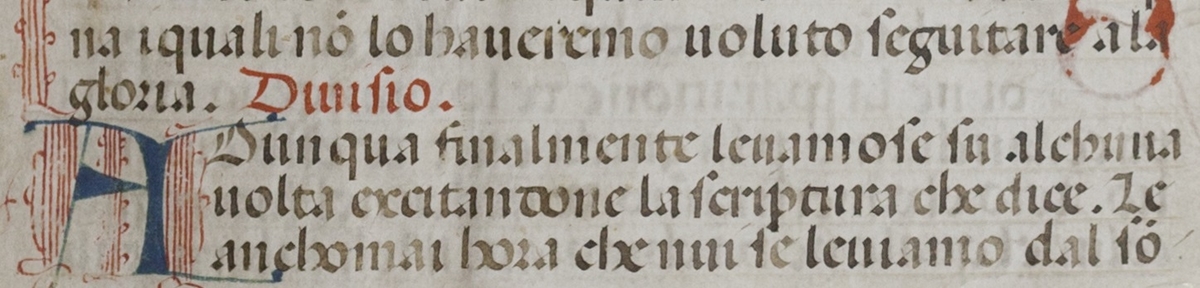 na iquali nō lo haueremo uoluto seguitare ala
gloria. Diuisio.
ADunqua finalmente leuamose su alchuna
uolta excitandone la scriptura che dice. Ze
anchomai hora che nui se leuiamo dal sō